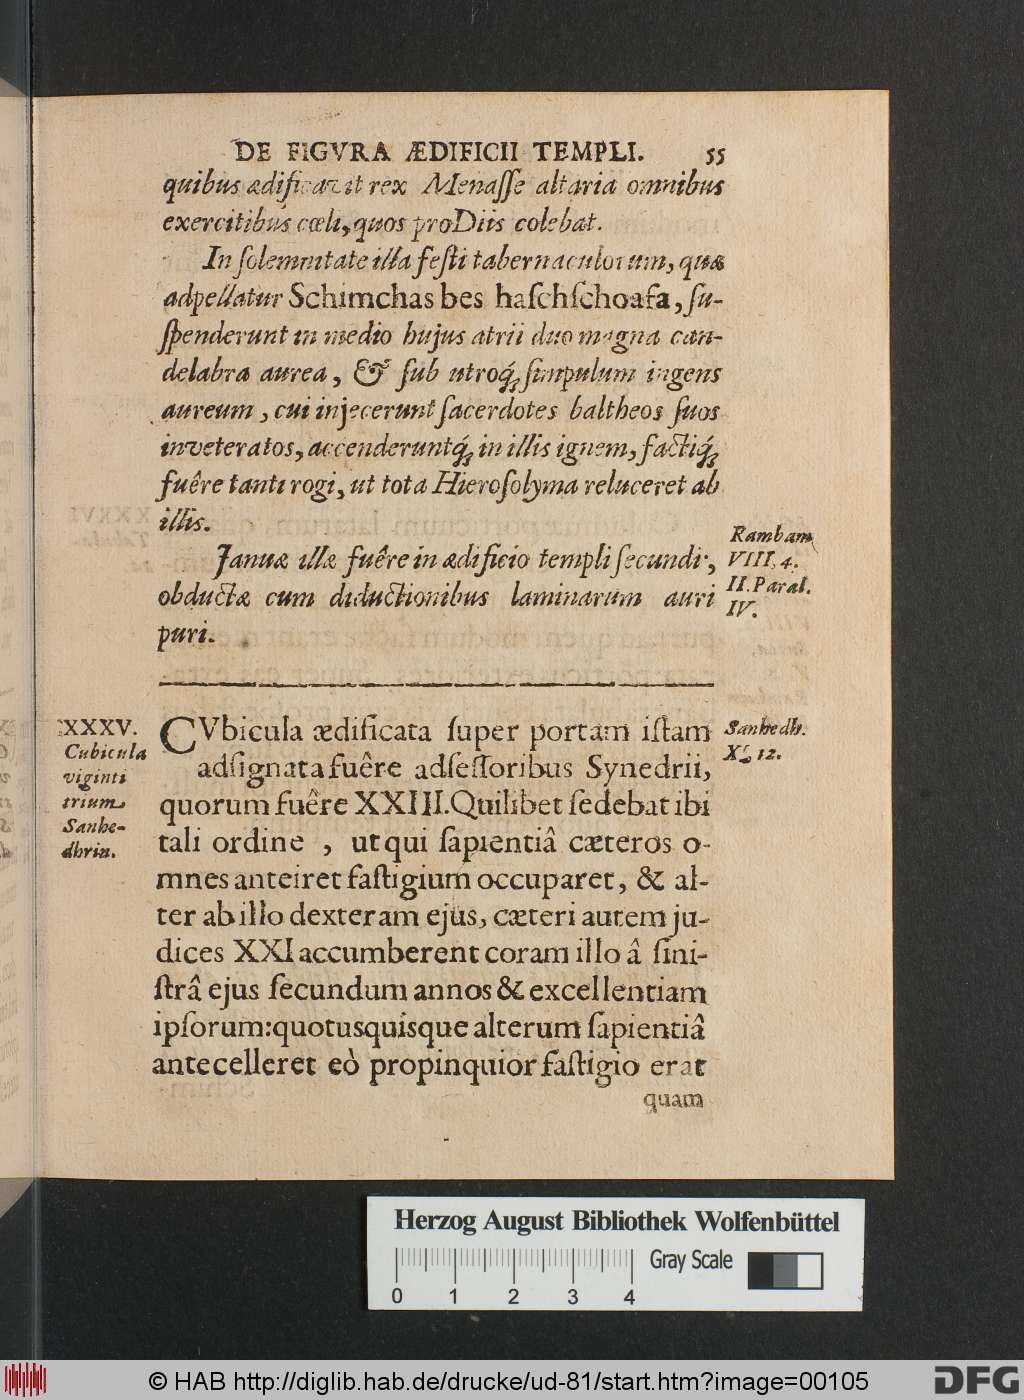 DE FIGVRA ÆDIFICII TEMPLI. 55
quibus ædificavit rex Menaſſe altaria omnibus
exercitibus cœli, quos pro Diis colebat.
In ſolemnitate illa feſti tabernaculorum, quæ
adpellatur Schimchas bes haſchſchoafa, ſu-
ſpenderunt in medio hujus atrii duo magna can-
delabra aurea, & ſub utroq́; ſimpulum ingens
aureum, cui injecerunt ſacerdotes baltheos ſuos
inveteratos, accenderuntq́; in illis ignem, factiq́;
fuêre tanti rogi, ut tota Hieroſolyma reluceret ab
illis.
Januæ illæ fuêre in ædificio templi ſecundi,
obductæ cum diductionibus laminarum auri
puri.
Rambam
VIII, 4.
II. Paral.
IV.
XXXV.
Cubicula
viginti
trium
Sanhe-
dhrin.
CVbicula ædificata ſuper portam iſtam
adſignata fuêre adſeſſoribus Synedrii,
quorum fuêre XXIII. Quilibet ſedebat ibi
tali ordine, ut qui ſapientiâ cæteros o-
mnes anteiret faſtigium occuparet, & al-
ter ab illo dexteram ejus, cæteri autem ju-
dices XXI accumberent coram illo â ſini-
ſtrâ ejus ſecundum annos & excellentiam
ipſorum: quotusquisque alterum ſapientiâ
antecelleret eò propinquior faſtigio erat
quam
Sanhedh.
X, 12.
Herzog August Bibliothek Wolfenbüttel
Gray Scale
0 1 2 3 4
© HAB http://diglib.hab.de/drucke/ud-81/start.htm?image=00105
DFG